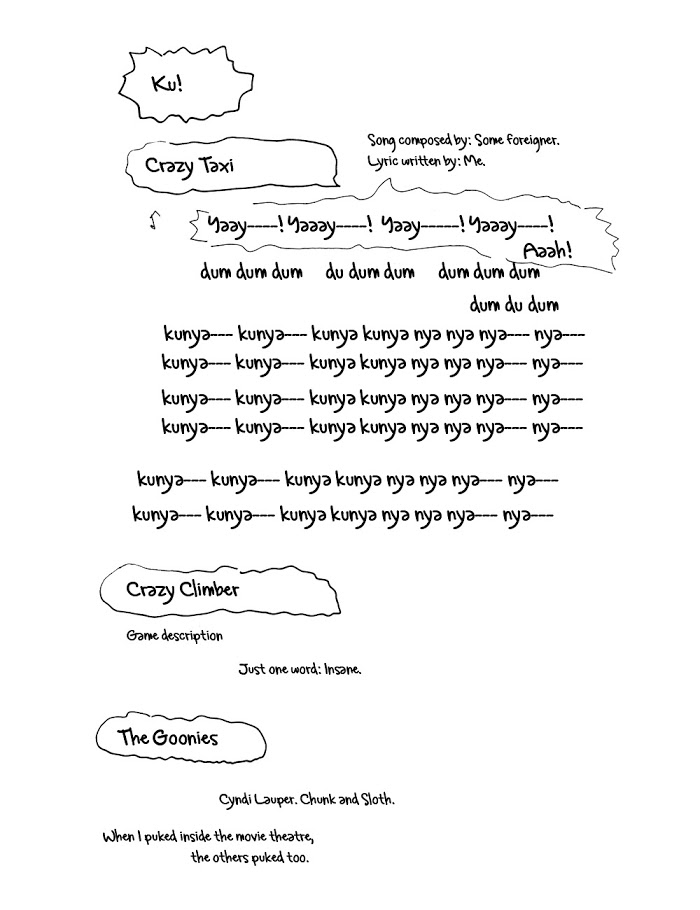 Ku!
Song composed by: Some foreigner.
Crazy Taxi
Lyric written by: Me.
Yaay----! Yaaay----! Yaay-----! Yaaay----!
Aaah!
dum dum dum du dum dum dum dum dum
dum du dum
kunya--- kunya--- kunya kunya nya nya nya--- nya---
kunya--- kunya--- kunya kunya nya nya nya--- nya---
kunya--- kunya--- kunya kunya nya nya nya--- nya---
kunya--- kunya--- kunya kunya nya nya nya--- nya---
kunya--- kunya--- kunya kunya nya nya nya--- nya---
kunya--- kunya--- kunya kunya nya nya nya--- nya---
Crazy Climber
Game description
Just one word: Insane.
The Goonies
Cyndi Lauper. Chunk and Sloth.
When I puked inside the movie theatre,
the others puked too.